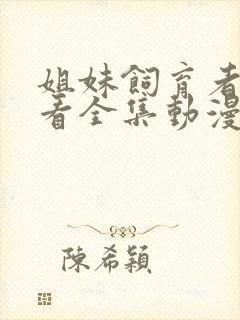 姐妹飼育者
看全集動漫
陳希穎